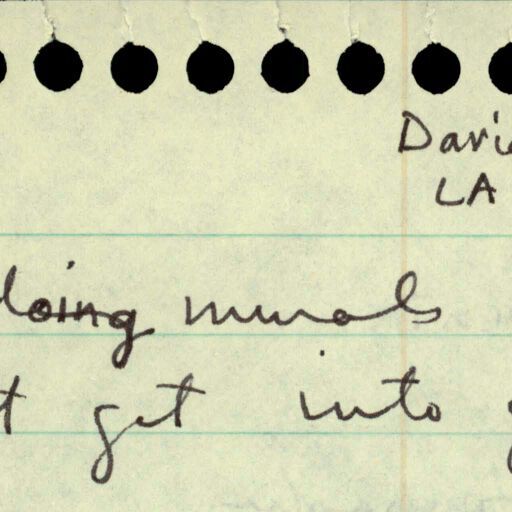 LA
doing murals
get into